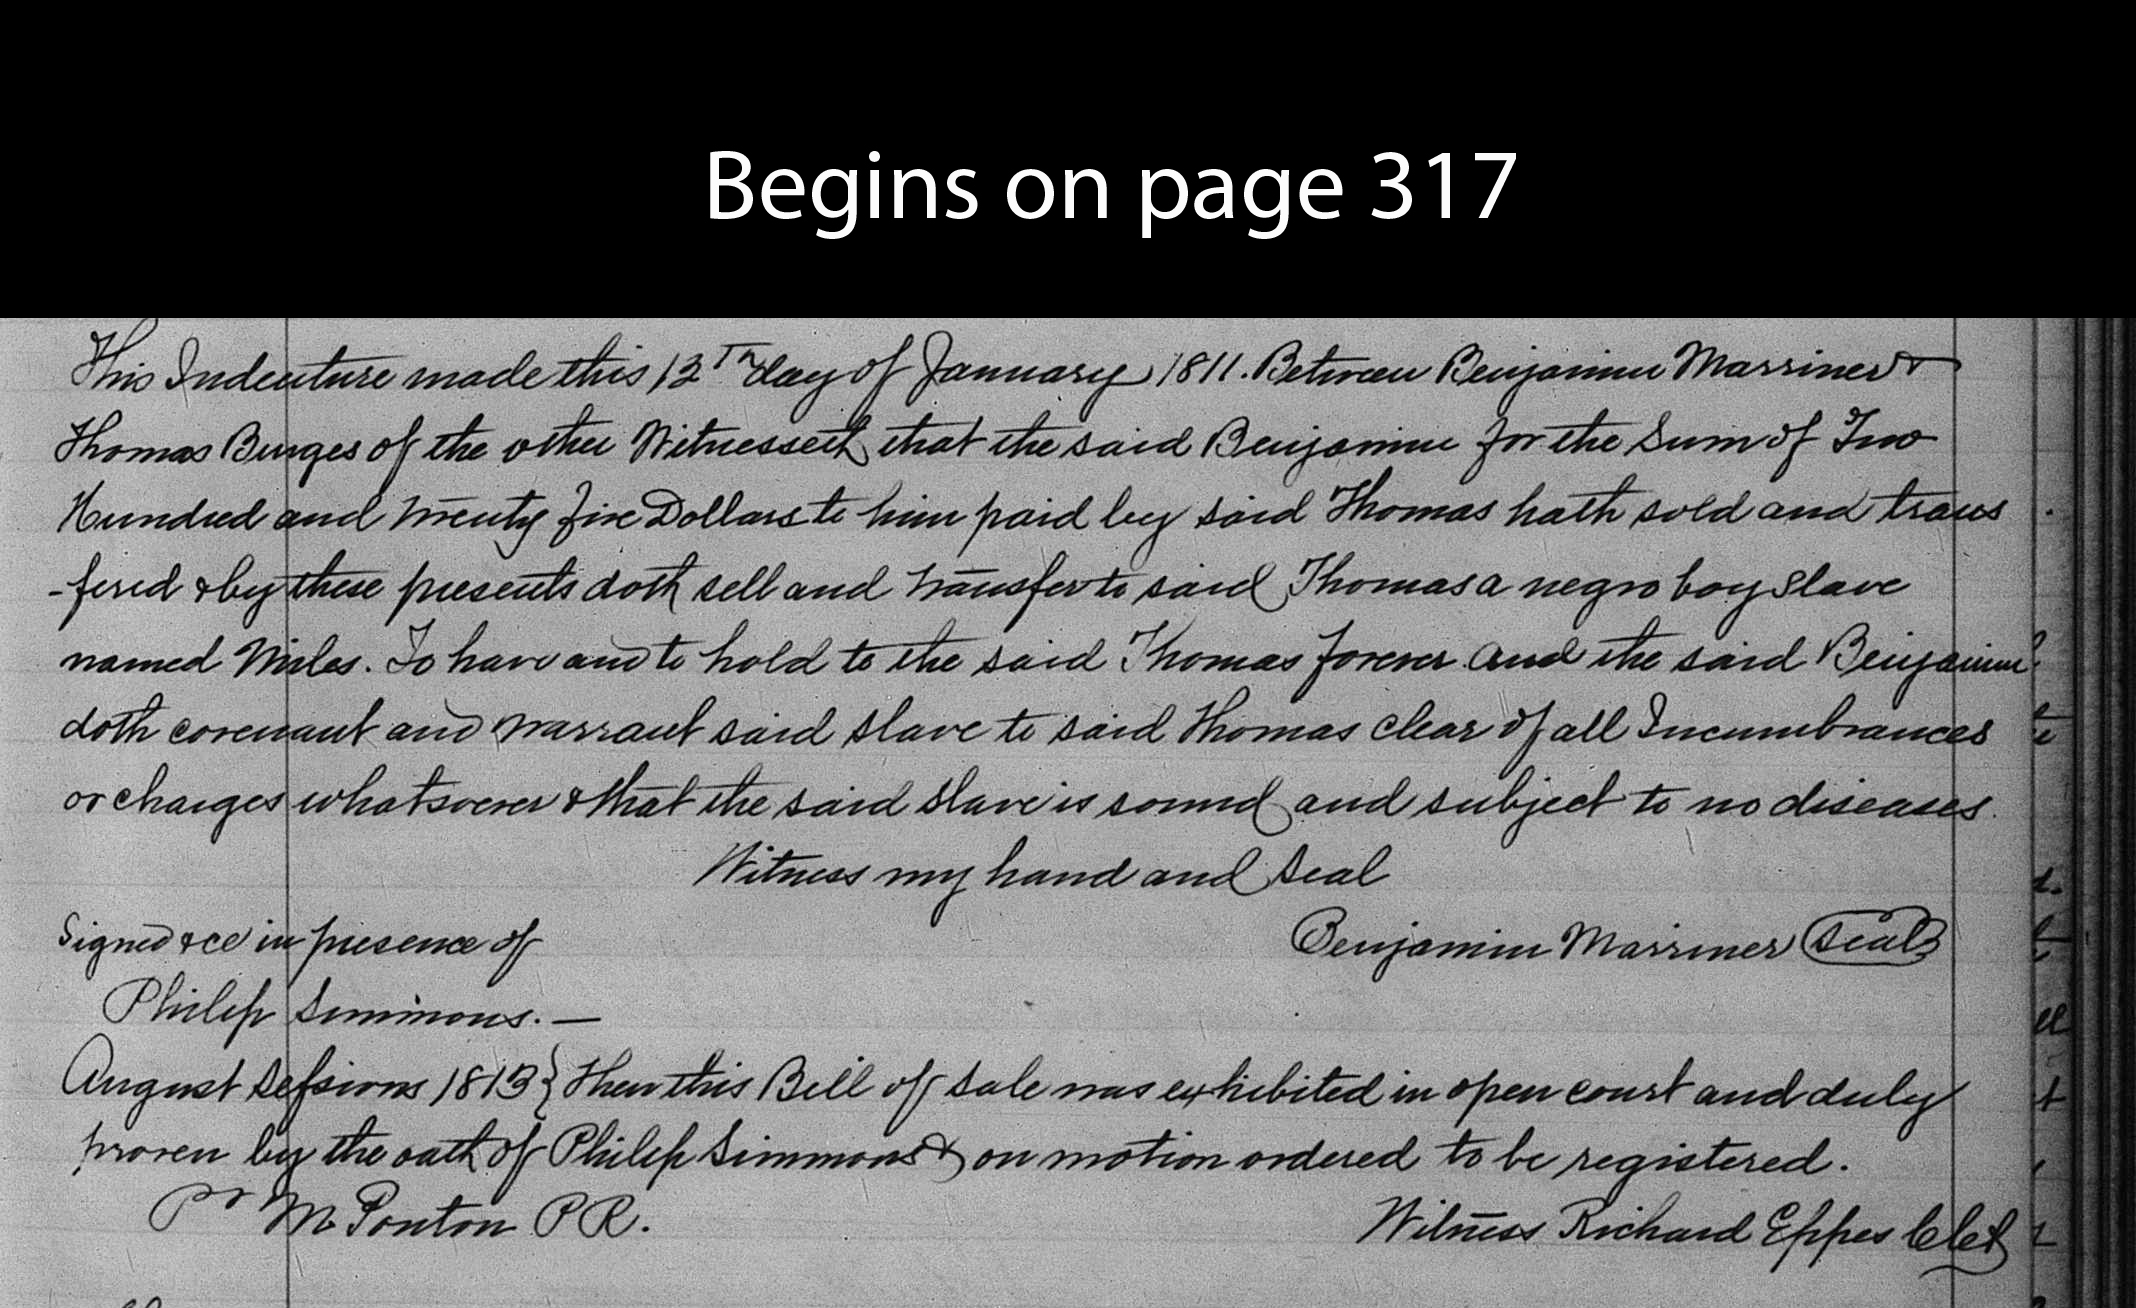 Begins on page 317
This Indenture made this 12Th day of January 1811. Between Benjamin Marriner &
Thomas Burges of the other Witnesseth that the said Benjamin for the Sum of Two
Hundred and twenty five Dollars to him paid by said Thomas hath sold and trans
-fered & by these presents doth sell and transfer to said Thomas a negro boy Slave
named Miles. To have and to hold to the said Thomas forever and the said Benjamin
doth covenant and warrant said slave to said Thomas clear of all Incumbrances
or charges whatsoever & that the said slave is sound and subject to no diseases.
Witness my hand and seal
Signed &ce in presence of Benjamin Marriner Seal
Philip Simmons. —
August Sessions 1813 } Then this Bill of sale was exhibited in open court and duly
proven by the oath of Philip Simmons & on motion ordered to be registered.
Pr M Ponton P R. Witness Richard Eppes Clek